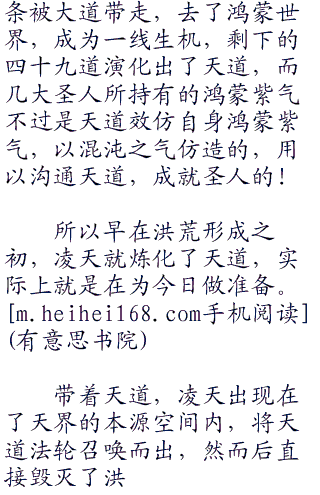 条被大道带走，去了鸿蒙世
界，成为一线生机，剩下的
四十九道演化出了天道，而
几大圣人所持有的鸿蒙紫气
不过是天道效仿自身鸿蒙紫
气，以混沌之气仿造的，用
以沟通天道，成就圣人的！
所以早在洪荒形成之
初，凌天就炼化了天道，实
际上就是在为今日做准备。
[m.heihei168.com手机阅读]
(有意思书院)
带着天道，凌天出现在
了天界的本源空间内，将天
道法轮召唤而出，然而后直
接毁灭了洪